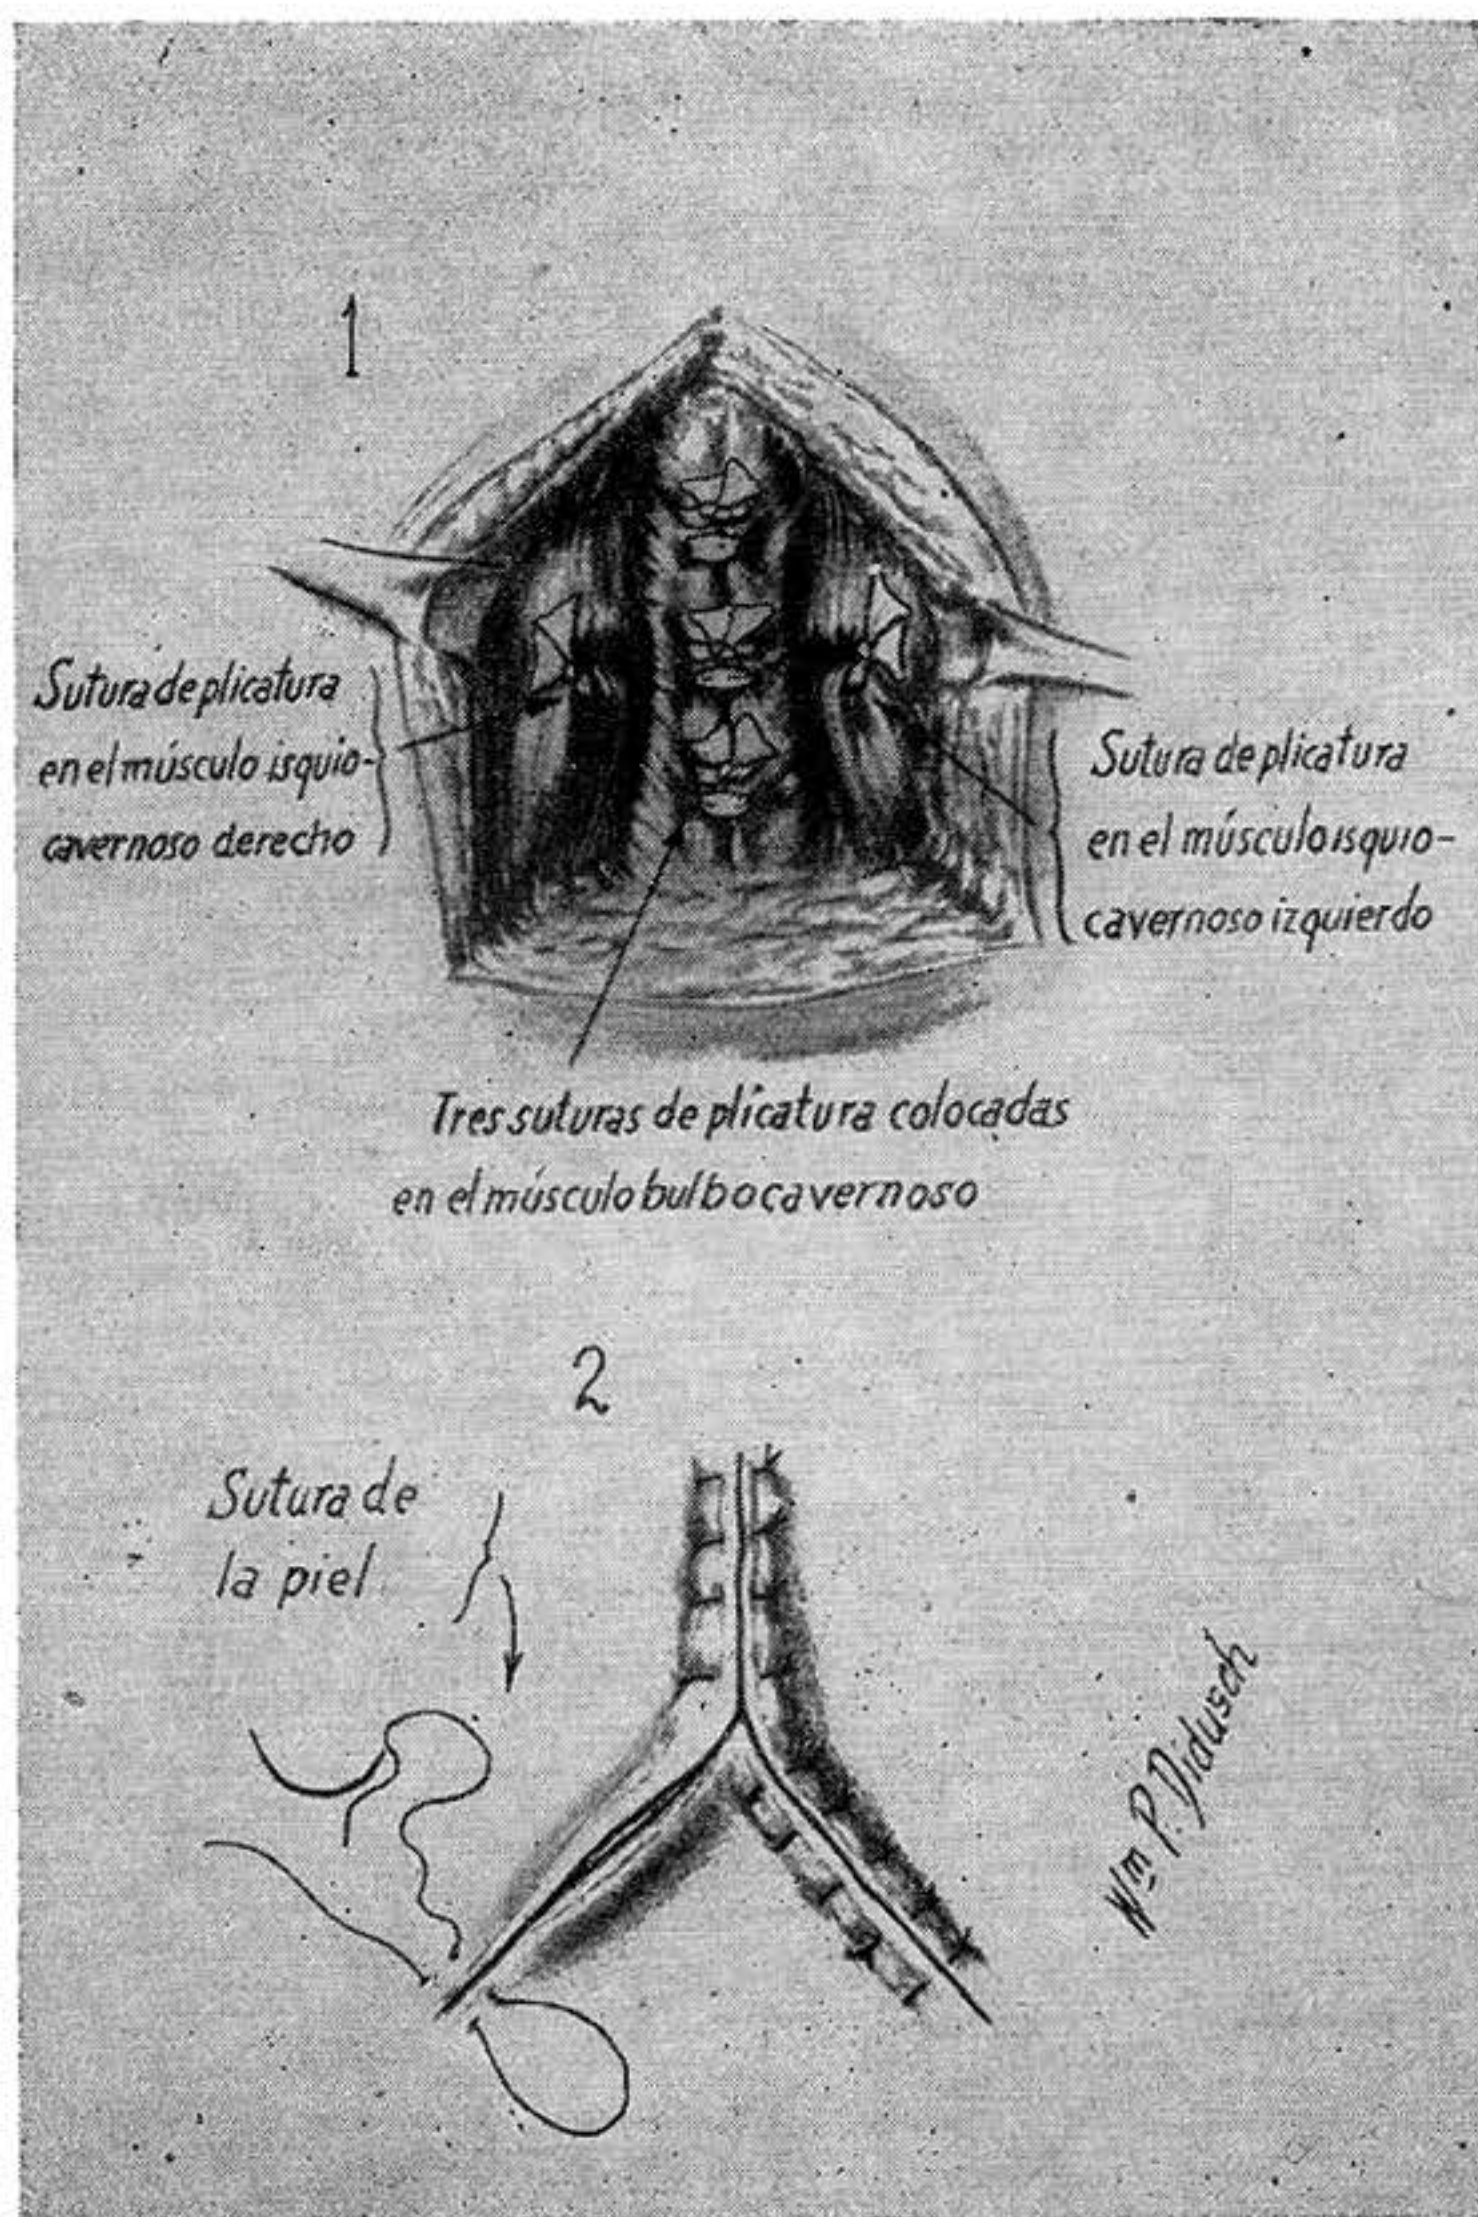 1
Sutura de plicatura
en el músculo isquio-
cavernoso derecho
Sutura de plicatura
en el músculo isquio-
cavernoso izquierdo
Tres suturas de plicatura colocadas
en el músculo bulbocavernoso
2
Sutura de
la piel
Wm P. Didusch